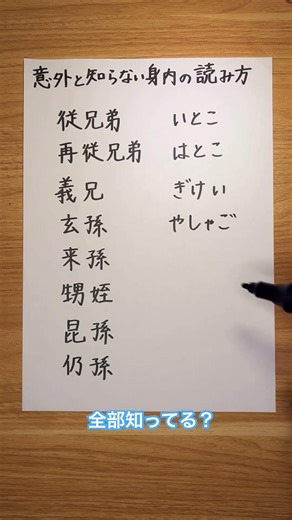 意外と知らない身内の読み方
従兄弟 いとこ
再従兄弟 はとこ
義兄 ぎけい
玄孫 やしゃご
来孫
甥姪
昆孫
仍孫
全部知ってる?